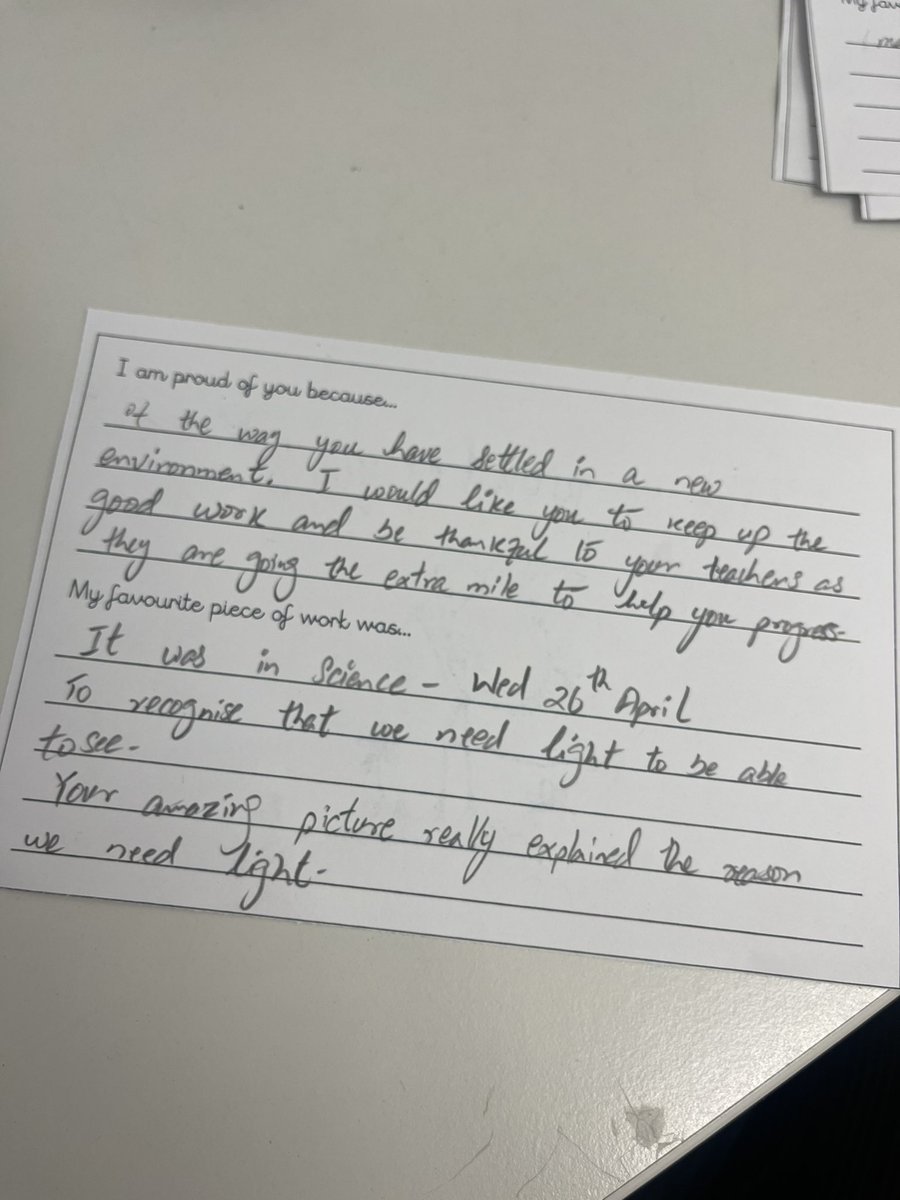 My fav
I am proud of you because...
of the way you have settled in a new
environment. I would like you to keep up the
good work and be thankful to your teachers as
they are going the extra mile to help you progress-
My favourite piece of work was...
It was in Science - Wed 26th April
To recognise that we need light to be able
to see-
Your amazing picture really explained the reason
we need light-